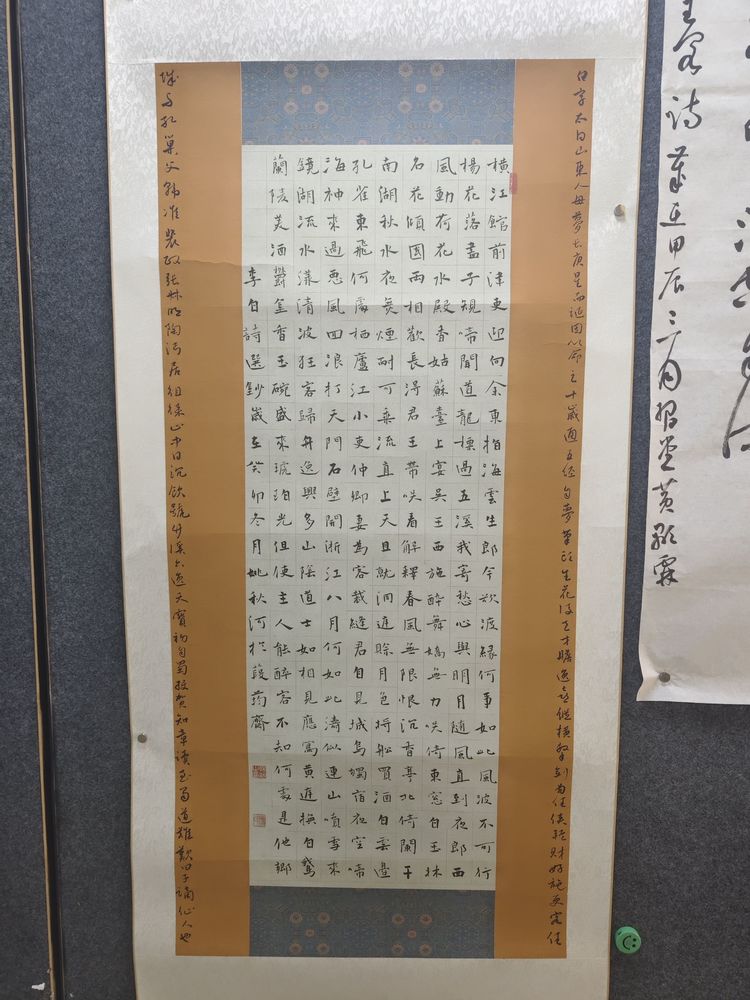 白字太白山東人母夢長庚星而誕因以命之十歲通五經自夢筆頭生花後天才贍逸喜縱橫擊劍為任俠輕財好施更客任
橫江館前津吏迎向余東指海雲生郎今欲渡緣何事如此風波不可行
楊花落盡子規啼聞道龍標過五溪我寄愁心與明月隨風直到夜郎西
風動荷花水殿香姑蘇臺上宴吳王西施醉舞嬌無力笑倚東窓白玉牀
名花傾國兩相歡長得君王帶笑看解釋春風無限恨沉香亭北倚闌干
南湖秋水夜無煙耐可乘流直上天且就洞庭賒月色將船買酒白雲邊
孔雀東飛何處栖廬江小吏仲卿妻為客裁縫君自見城烏獨宿夜空啼
海神來過惡風回浪打天門石壁開浙江八月何如此濤似連山噴雪來
鏡湖流水漾清波狂客歸舟逸興多山陰道士如相見應寫黃庭換白鵝
蘭陵美酒鬱金香玉碗盛來琥珀光但使主人能醉客不知何處是他鄉
李白詩選鈔歲在癸卯冬月姚秋河於葭菂齋
城與孔巢父韓準裴政張叔明陶沔居徂徠山中日沉飲號竹溪六逸天寶初自蜀投賀知章讀至蜀道難歎曰子謫仙人也
詩
甲辰三月
堂黃
霖